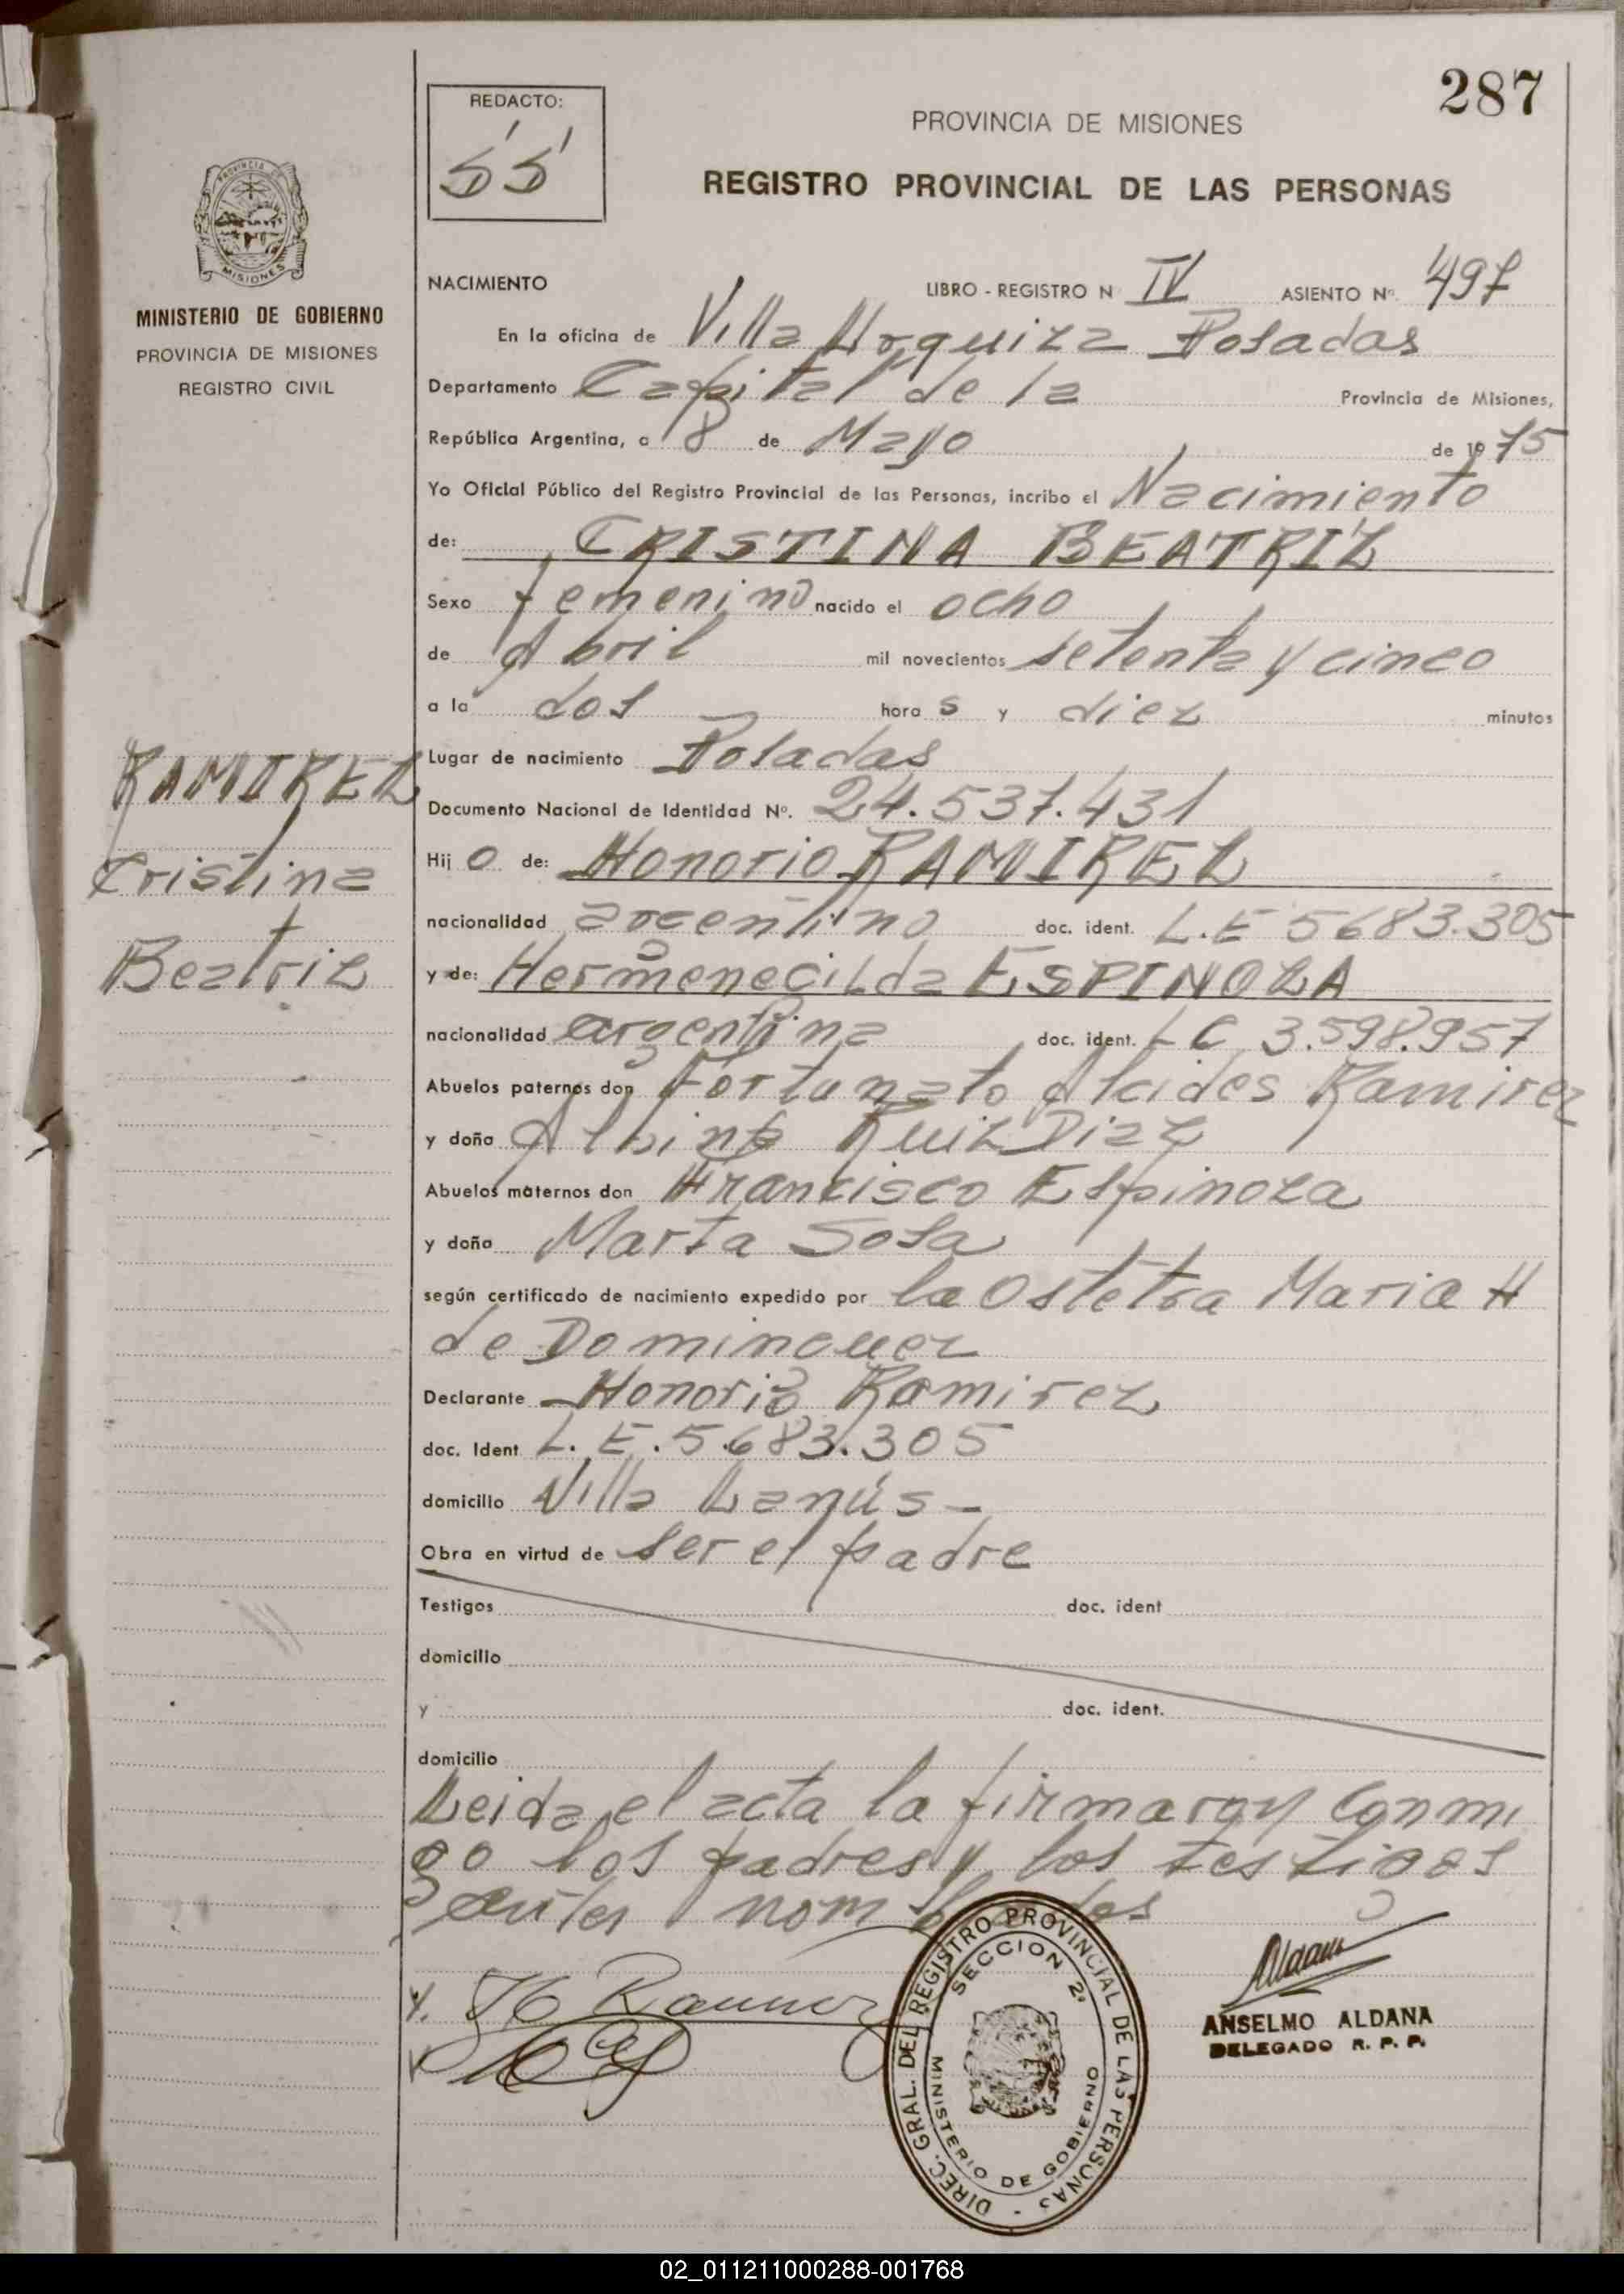 287
REDACTO:
55
PROVINCIA DE MISIONES
REGISTRO PROVINCIAL DE LAS PERSONAS
PROVINCIA DE
MISIONES
MINISTERIO DE GOBIERNO
PROVINCIA DE MISIONES
REGISTRO CIVIL
NACIMIENTO LIBRO - REGISTRO N IV ASIENTO Nº. 497
En la oficina de Villa Urquiza Posadas
Departamento Capital de la Provincia de Misiones,
República Argentina, a 8 de Mayo de 1975
Yo Oficial Público del Registro Provincial de las Personas, incribo el Nacimiento
de: CRISTINA BEATRIZ
Sexo femenino nacido el ocho
de Abril mil novecientos setenta y cinco
a la dos hora s y diez minutos
Lugar de nacimiento Posadas
RAMIREZ
Cristina
Beatriz
Documento Nacional de Identidad Nº. 24.537.431
Hij o de: Honorio RAMIREZ
nacionalidad argentino doc. ident. L.E 5683.305
y de: Hermenegilda ESPINOZA
nacionalidad argentina doc. ident. L C 3.598.957
Abuelos paternos don Fortunato Alcides Ramirez
y doña Albina Ruiz Diaz
Abuelos maternos don Francisco Espinoza
y doña Marta Sosa
según certificado de nacimiento expedido por la Ostetra Maria H
de Dominguez
Declarante Honorio Ramirez
doc. Ident L.E.5.683.305
domicilio Villa Lanús -
Obra en virtud de ser el padre
Testigos doc. ident
domicilio
y doc. ident.
domicilio
Leida el acta la firmaron conmi
go los padres y los testigos
antes nombrados
H Ramirez
DIREC. GRAL. DEL REGISTRO PROVINCIAL DE LAS PERSONAS -
SECCION 2ª
MINISTERIO DE GOBIERNO
Aldana
ANSELMO ALDANA
DELEGADO R. P. P.
02_011211000288-001768